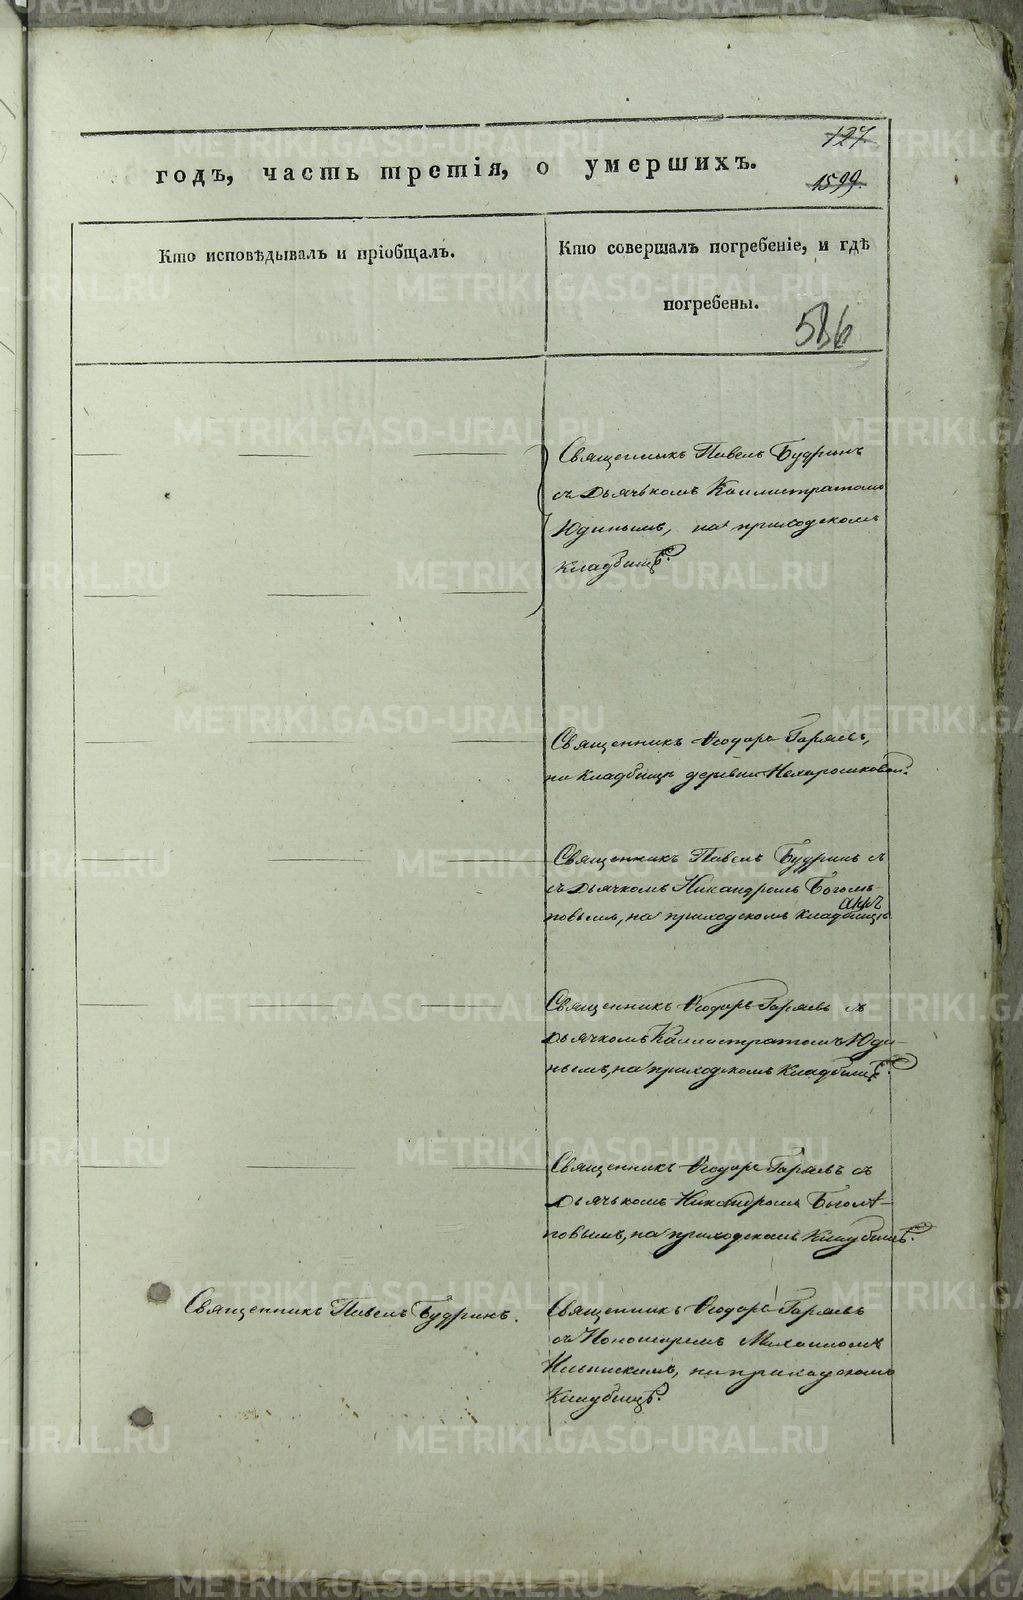 127.
годъ, часть третія, о умершихъ.
1599.
Кто исповѣдывалъ и пріобщалъ.
Кто совершалъ погребеніе, и гдѣ
погребены.
586
Священникъ Павелъ Будринъ
съ Дьячькомъ Каллистратомъ
Юдинымъ, на приходскомъ
кладбищѣ.
Священникъ Ѳеодоръ Гаряевъ,
на кладбищѣ деревни
Священникъ Павелъ Будринъ съ
съ Дьячкомъ Никандромъ Богомъ-
повымъ, на приходскомъ кладбищѣ
Священникъ Ѳеодоръ Гаряевъ съ
Дьячкомъ Каллистратомъ Юди-
нымъ, на приходскомъ кладбищѣ.
Священникъ Ѳеодоръ Гаряевъ съ
Дьячькомъ Никандромъ
повымъ, на приходскомъ кладбищѣ.
Священникъ Павелъ Будринъ.
Священникъ Ѳеодоръ Гаряевъ
съ Пономаремъ Михаиломъ
на приходскомъ
кладбищѣ.
METRIKI.GASO-URAL.RU